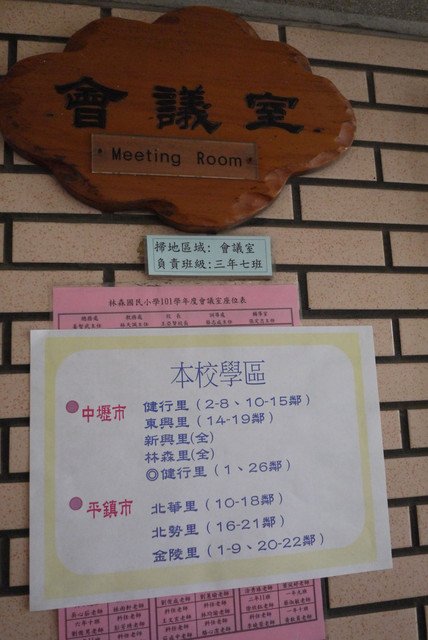 會議室
Meeting Room
掃地區域: 會議室
負責班級:三年七班
林森國民小學101學年度會議室座位表
總務處 教務處 校 長 訓導處 輔導室
本校學區
中壢市 健行里(2-8、10-15鄰)
東興里(14-19鄰)
新興里(全)
林森里(全)
◎健行里(1、26鄰)
平鎮市 北華里(10-18鄰)
北勢里(16-21鄰)
金陵里(1-9、20-22鄰)